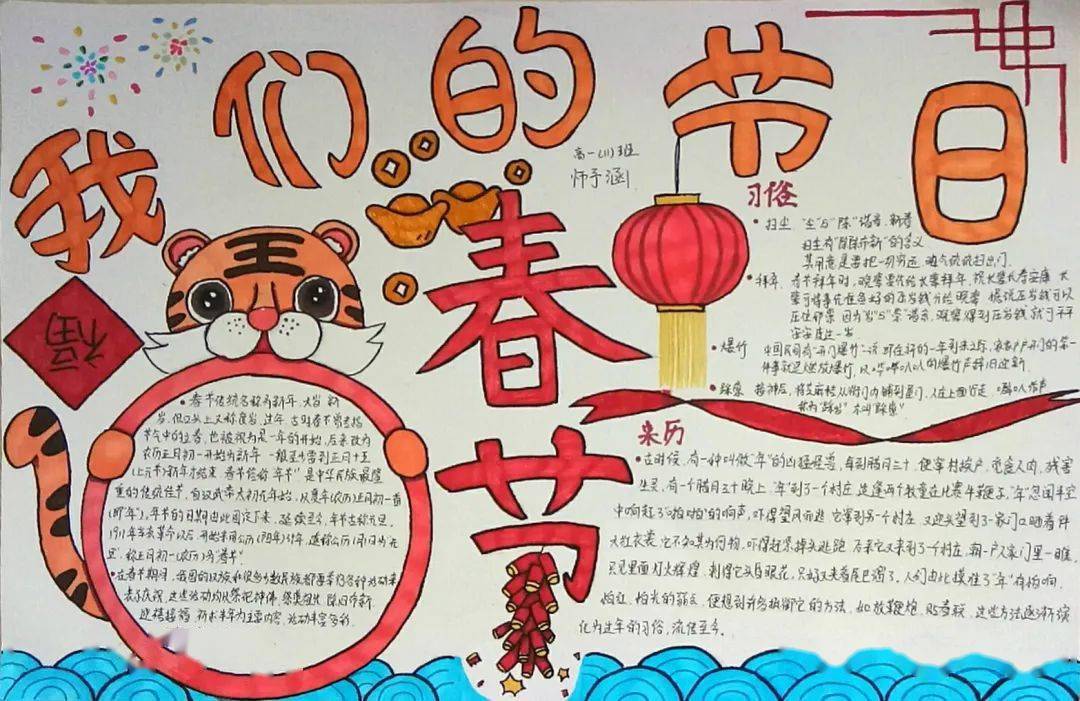 我们的节日
春节
高一(11)班
师予涵
福
王
习俗
• 扫尘 "尘"与"陈"谐音,新春
扫尘有"除陈布新"的含义
其用意是要把一切穷运,晦气统统扫出门。
• 拜年 春节拜年时,晚辈要先给长辈拜年,祝长辈长寿安康,长
辈可将事先准备好的压岁钱分给晚辈,据说压岁钱可以
压住邪祟,因为"岁"与"祟"谐音,晚辈得到压岁钱就可平平
安安度过一岁
• 爆竹 中国民间有"开门爆竹"一说,即在新的一年到来之际,家家户户开门的第一
件事就是燃放爆竹,以哔哔叭叭的爆竹声辞旧迎新
• 踩祟
来历
• 古时候,有一种叫做"年"的凶猛怪兽,每到腊月三十,便窜村挨户,觅食人肉,残害
生灵,有一个腊月三十晚上,"年"到了一个村庄,适逢两个牧童在比赛牛鞭子,"年"忽闻半空
中响起了啪啪的响声,吓得望风而逃,它窜到另一个村庄,又迎头望到了一家门口晒着件
大红衣裳,它不知其为何物,吓得赶紧掉头逃跑,后来它又来到了一个村庄,朝一户人家门里一瞧,
只见里面灯火辉煌,刺得它头昏眼花,只好又夹着尾巴溜了,人们由此摸准了"年"有怕响,
怕红,怕光的弱点,便想到许多抵御它的方法,如放鞭炮,贴春联,这些方法逐渐演
化为过年的习俗,流传至今。
• 春节传统名称为新年,大岁,新
岁,但口头上又称度岁,过年,古时春节曾专指
节气中的立春,也被视为是一年的开始,后来改为
农历正月初一开始为新年,一般至少要到正月十五
(上元节)新年才结束,春节俗称"年节",是中华民族最隆
重的传统佳节,自汉武帝太初元年始,以夏年(农历)正月初一为
年节的日期由此固定下来,延续至今,年节古称元旦,
1911年辛亥革命以后,开始采用公历(阳历)计年,遂称公历1月1日为"元
旦",称正月初一(农历)为"春节"
• 在春节期间,我国的汉族和很多少数民族都要举行各种活动来
表示庆祝,这些活动均以祭祀神佛,祭奠祖先,除旧布新,
迎禧接福,祈求丰年为主要内容,活动丰富多彩。